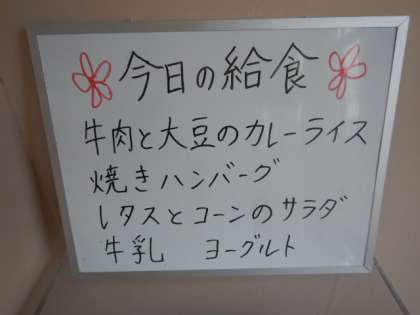 今日の給食
牛肉と大豆のカレーライス
焼きハンバーグ
レタスとコーンのサラダ
牛乳 ヨーグルト